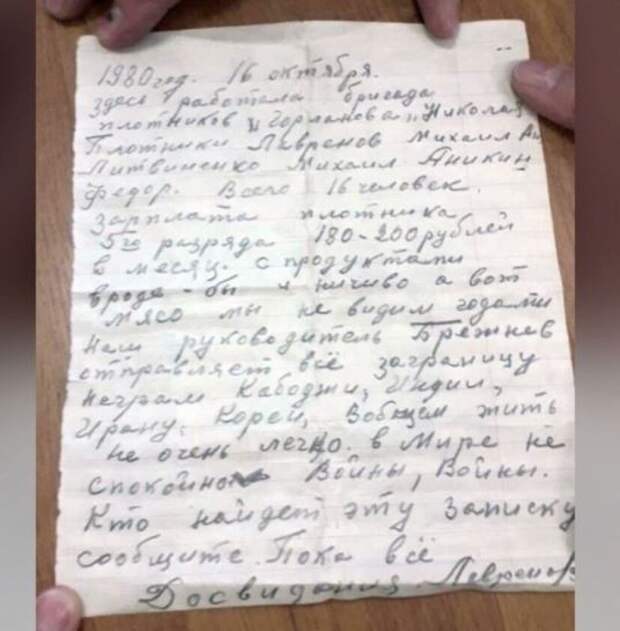 1980 год. 16 октября.
здесь работала бригада
плотников "Горланова" Николая
Плотники Лавренов Михаил
Литвиненко Михаил Аникин
Федор. Всего 16 человек.
Зарплата плотника
5го разряда 180-200 рублей
в месяц. с продуктами
вроде-бы и ничиво а вот
мясо мы не видим годами
наш руководитель Брежнев
отправляет всё заграницу
неграм Кабоджи, Индии,
Ирану, Кореи, Вобщем жить
не очень легко. в Мире не
спокойно Войны, Войны.
Кто найдет эту записку
сообщите. Пока всё
Досвидания. Лавренов